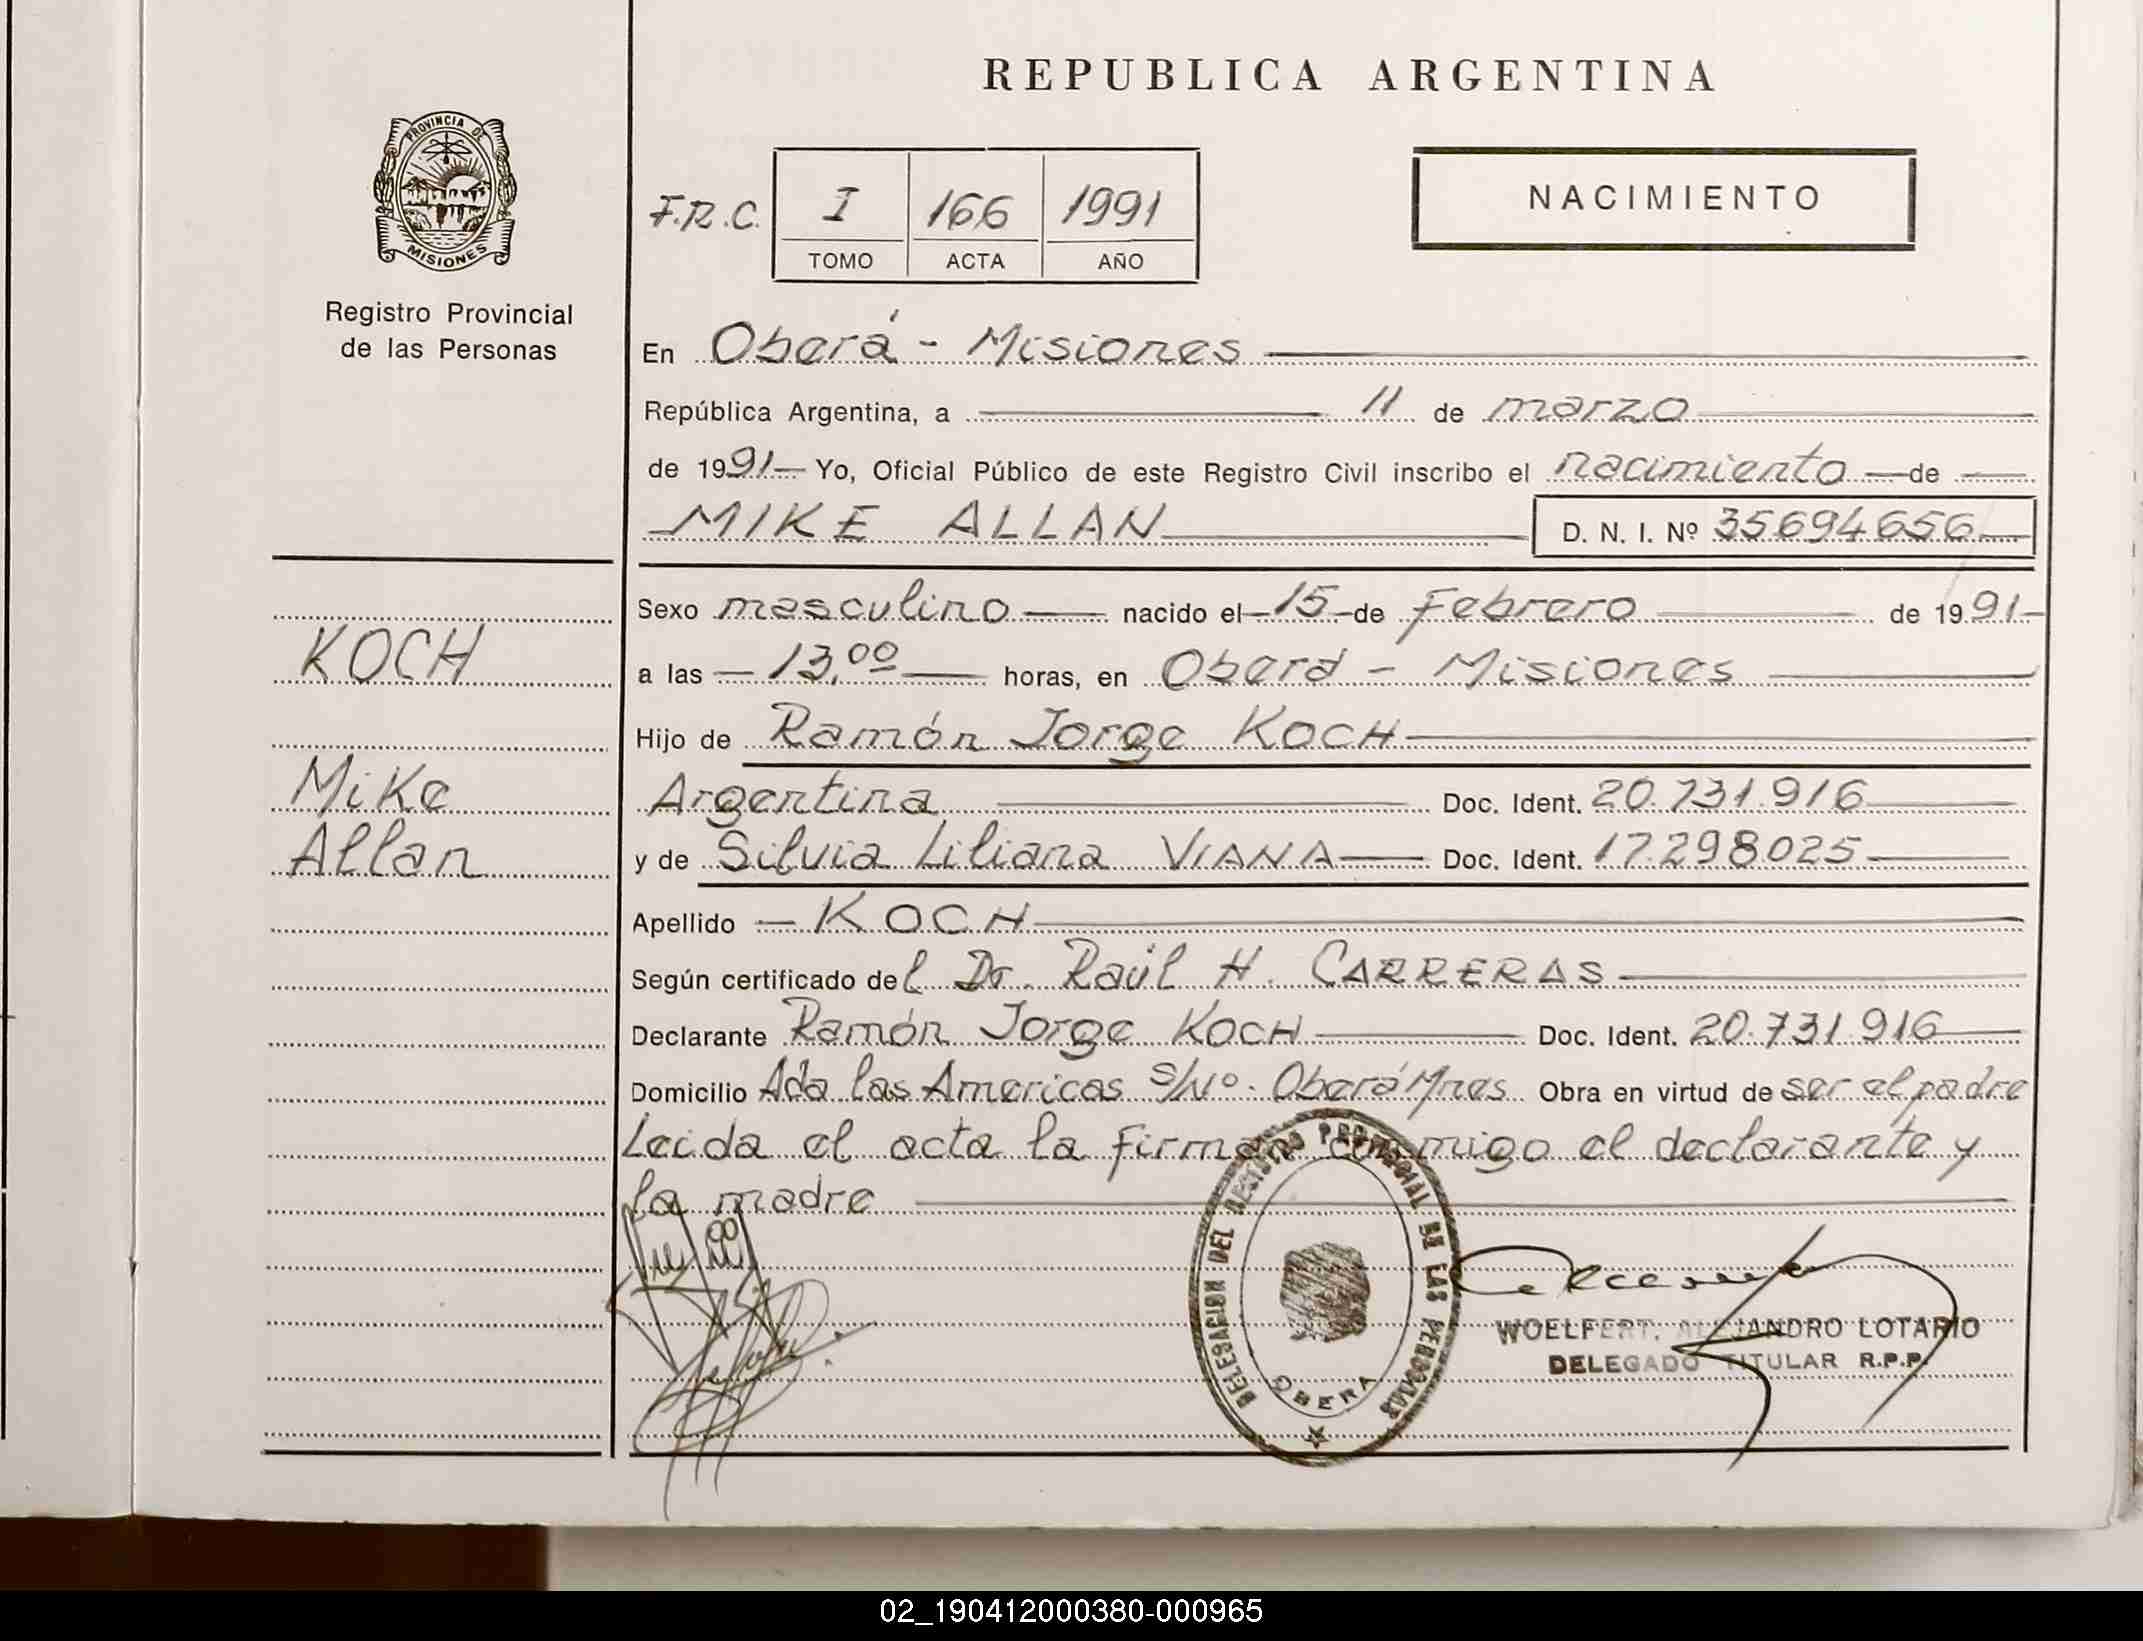 REPUBLICA ARGENTINA
PROVINCIA DE
MISIONES
Registro Provincial
de las Personas
F.R.C. I 166 1991
TOMO ACTA AÑO
NACIMIENTO
En Oberá - Misiones
República Argentina, a 11 de marzo
de 1991 Yo, Oficial Público de este Registro Civil inscribo el nacimiento de
MIKE ALLAN D. N. I. Nº 35694656
Sexo masculino nacido el 15 de Febrero de 1991
a las 13,00 horas, en Oberá - Misiones
Hijo de Ramón Jorge KOCH
Argentina Doc. Ident. 20.731.916
y de Silvia Liliana VIANA Doc. Ident. 17.298.025
Apellido KOCH
Según certificado del Dr. Raúl H. CARRERAS
Declarante Ramón Jorge KOCH Doc. Ident. 20.731.916
Domicilio Ada las Americas s/Nº. Oberá Mnes Obra en virtud de ser el padre
Leida el acta la firman conmigo el declarante y
la madre
KOCH
Mike
Allan
DELEGACION DEL REGISTRO PROVINCIAL DE LAS PERSONAS
OBERA
WOELFERT, ALEJANDRO LOTARIO
DELEGADO TITULAR R.P.P.
02_190412000380-000965